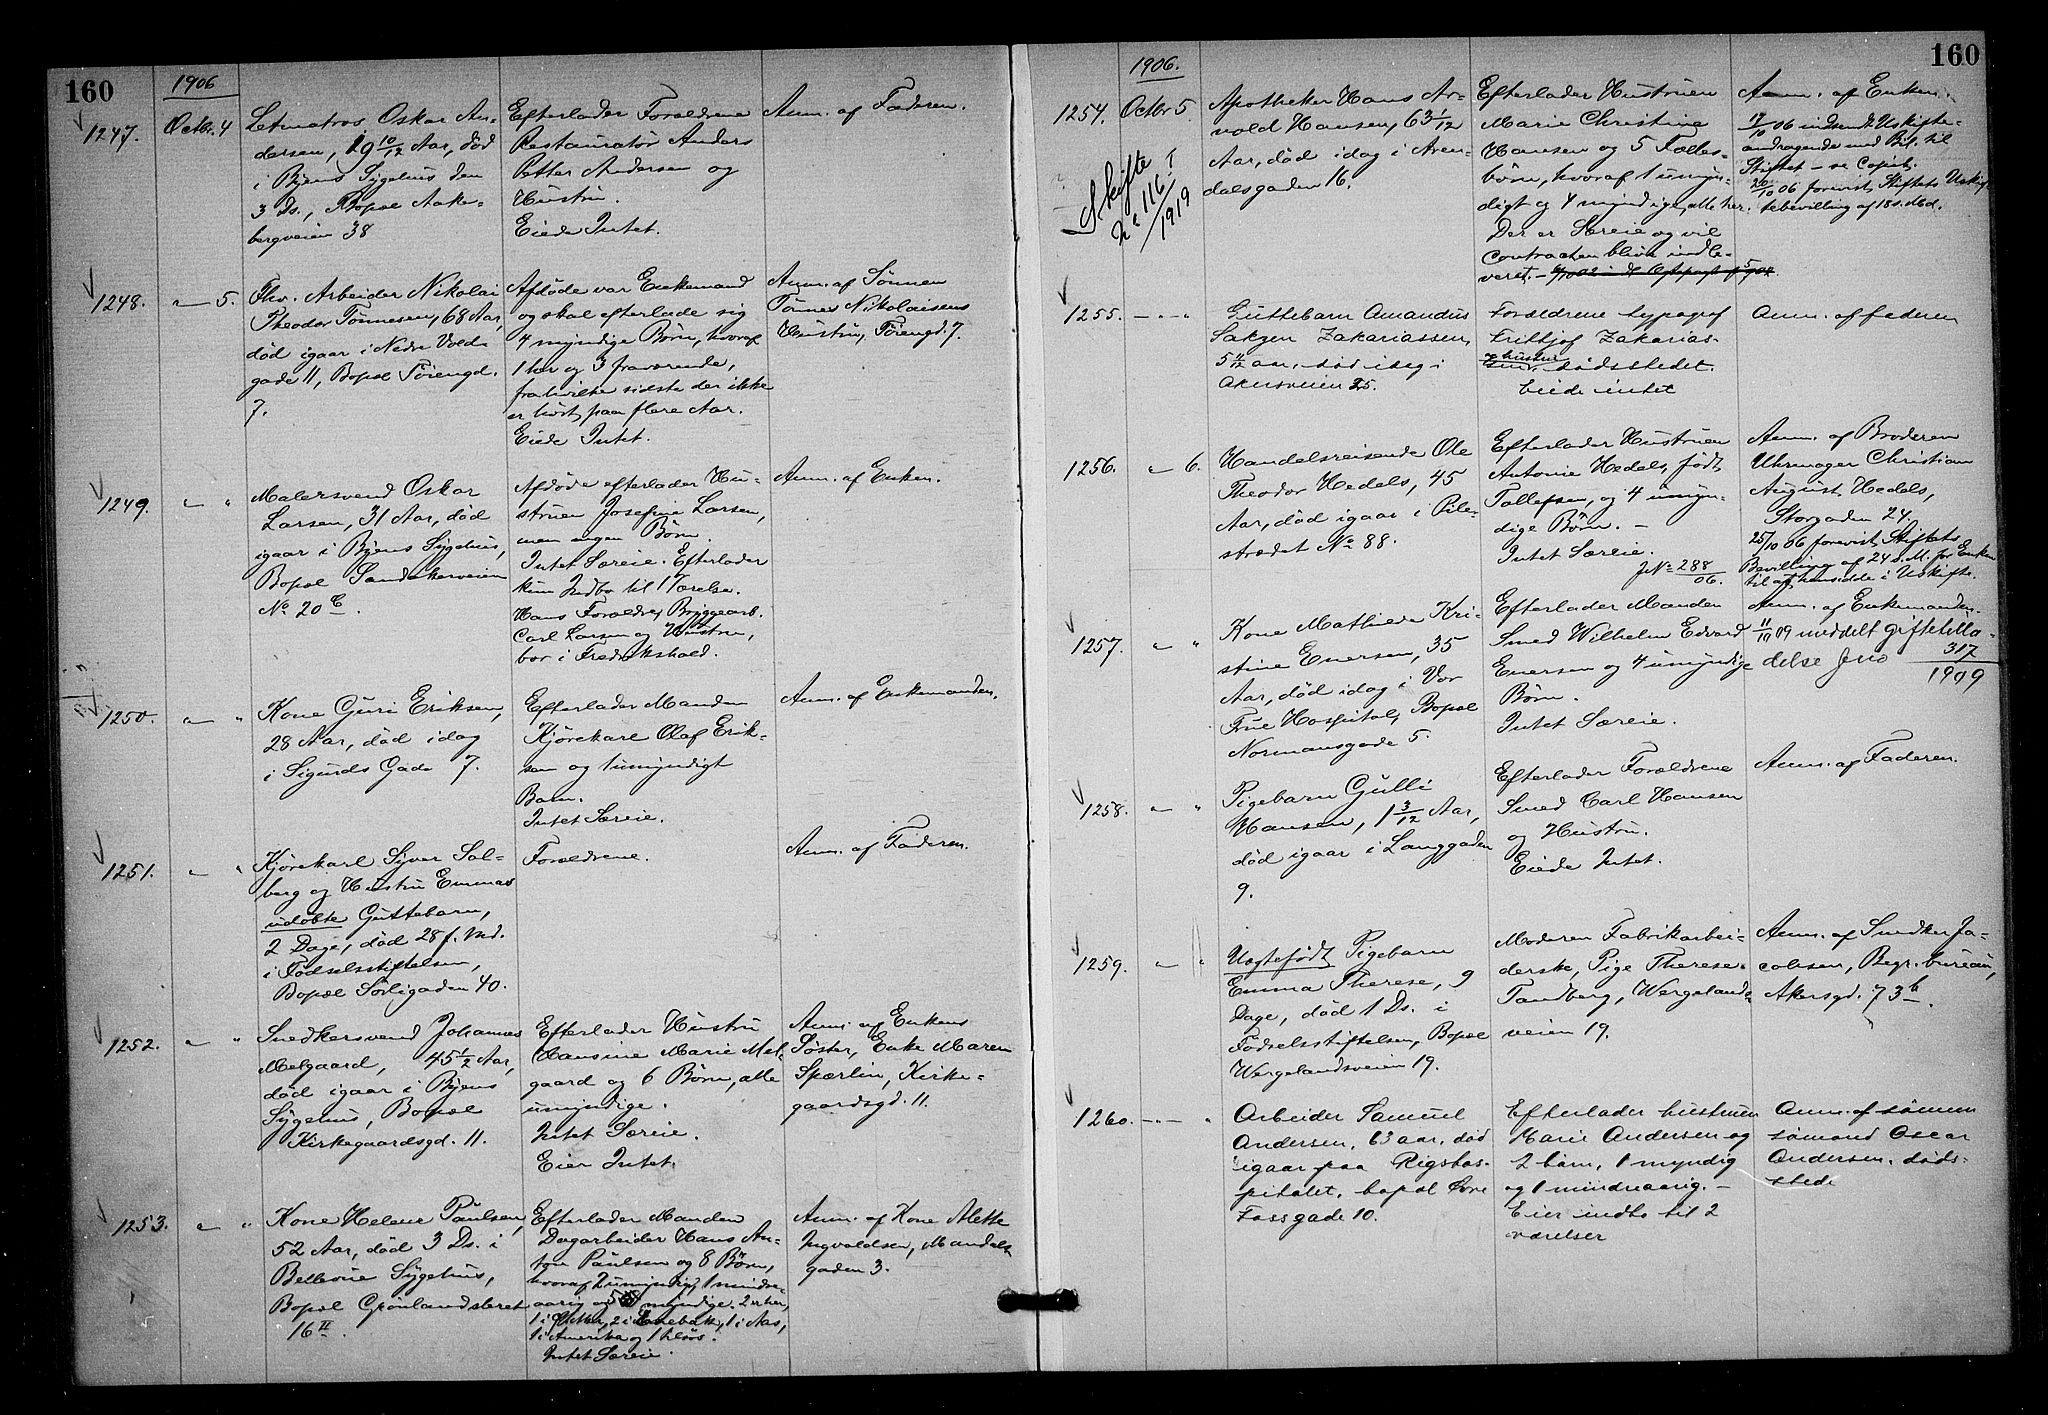 160
1906
1247.
Octbr. 4
Letmatros Oskar An-
dersen, 19 10/12 Aar, død
i Byens Sygehus den
3 Ds., Bopæl Aake-
bergveien 38
Efterlader Forældrene
Restauratør Anders
Petter Andersen og
Hustru.
Eiede Intet.
Anm. af Faderen.
1248.
" 5.
Fhv. Arbeider Nikolai
Theodor Tønnesen, 68 Aar,
død igaar i Nedre Vold-
gade 11, Bopæl Tøiengd.
7.
Afdøde var Enkemand
og skal efterlade sig
4 myndige Børn, hvoraf
1 her og 3 fraværende,
fra hvilke sidste der ikke
er hørt paa flere Aar.
Eiede Intet.
Anm. af Sønnen
Tønnes Nikolaisens
Hustru, Tøiengd. 7.
1249.
" "
Malersvend Oskar
Larsen, 31 Aar, død
igaar i Byens Sygehus,
Bopæl Sandakerveien
No. 20 c.
Afdøde efterlader Hu-
struen Josefine Larsen,
men ingen Børn.
Intet Særeie. Efterlader
kun Indbo til 1 Værelse.
Hans Forældre, Bryggearb.
Carl Larsen og Hustru,
bor i Fredrikshald.
Anm. af Enken.
1250.
" "
Kone Guri Eriksen,
28 Aar, død idag
i Sigurds Gade 7.
Efterlader Manden
Kjørekarl Olaf Erik-
sen og 1 umyndigt
Barn.
Intet Særeie.
Anm. af Enkemanden.
1251.
" "
Kjørekarl Syver Sol-
berg og Hustru Emmas
udøbte Guttebarn,
2 Dage, død 28 f. Md.
i Fødselsstiftelsen,
Bopæl Sørligaden 40.
Forældrene.
Anm. af Faderen.
1252.
" "
Snedkersvend Johannes
Melgaard, 45 1/2 Aar,
død igaar i Byens
Sygehus, Bopæl
Kirkegaardsgd. 11.
Efterlader Hustru
Hansine Marie Mel-
gaard og 6 Børn, alle
umyndige.
Intet Særeie.
Eier Intet.
Anm. af Enkens
Søster, Enke Maren
Spærlin, Kirke-
gaardsgd. 11.
1253.
" "
Kone Helene Paulsen,
52 Aar, død 3 Ds. i
Bellevue Sygehus,
Bopæl Grønlandsleret
16 II.
Efterlader Manden
Dagarbeider Hans An-
ton Paulsen og 8 Børn,
hvoraf 2 umyndig, 1 mindre-
aarig og 5 myndige. 2 er her,
2 i Enebak, 1 i Aas,
1 i Amerika og 1 tilsøs.
Intet Særeie.
Anm. af Kone Alette
Ingvaldsen, Mandals-
gaden 3.
160
1906.
1254.
Octbr 5
Skifte
No 116/1919
Apotheker Hans Ar-
vold Hansen, 63 /12
Aar, død idag i Aren-
dalsgaden 16.
Efterlader Hustruen
Marie Christine
Hansen og 5 Fælles-
børn, hvoraf 1 umyn-
digt og 4 myndige, alle her.
Der er Særeie og vil
Contracten blive indle-
veret. –
Anm. af Enken.
17/10 06 indsendt Uskifte-
andragende med Bil. til
Stiftet – se Copieb.
26/10 06 forevist Stiftets Uskif-
tebevilling af 18 s. Md.
1255.
" "
Guttebarn Amandus
Zakariassen,
5 11/12 aar, død idag i
Akersveien 25.
Forældrene typograf
Frithjof Zakarias-
sen, og hustru dødsstedet.
Eiede intet
Anm. af faderen
1256.
" 6.
Handelsreisende Ole
Theodor Hedels, 45
Aar, død igaar i Pile-
strædet No 88.
Efterlader Hustruen
Antonie Hedels, født
Tollefsen, og 4 umyn-
dige Børn. –
Intet Særeie.
JNo 288/06.
Anm. af Broderen
Uhrmager Christian
August Hedels,
Storgaden 24
25/10 06 forevist Stiftets
Bevilling af 24 d. M. for Enken
til at hensidde i Uskifte.
1257.
" "
Kone Mathilde Kri-
stine Enersen, 35
Aar, død idag i Vor
Frue Hospital, Bopæl
Normansgade 5.
Efterlader Manden
Smed Wilhelm Edvard
Enersen og 4 umyndige
Børn.
Intet Særeie.
Anm. af Enkemanden.
11/10 09 meddelt giftetilla-
delse Jno 317/1909
1258.
" "
Pigebarn Gulli
Hansen, 1 3/12 Aar,
død igaar i Langgaden
9.
Efterlader Forældrene
Smed Carl Hansen
og Hustru.
Eiede Intet.
Anm. af Faderen.
1259.
" "
Uægtefødt Pigebarn
Emma Therese, 9
Dage, død 1 Ds. i
Fødselsstiftelsen, Bopæl
Wergelandsveien 19.
Moderen Fabrikarbei-
derske, Pige Therese
Tandberg, Wergelands-
veien 19.
Anm. af Snedker Ja-
cobsen, Begr. bureau,
Akersgd. 73 b.
1260.
" "
Arbeider Samuel
Andersen, 63 aar, død
igaar paa Rigshos-
pitalet, bopæl Øvre
Fossgade 10.
Efterlader hustruen
Marie Andersen og
2 børn, 1 myndig
og 1 mindreaarig. –
Eier indbo til 2
værelser
Anm. af sønnen
sømand Oscar
Andersen, døds-
stede